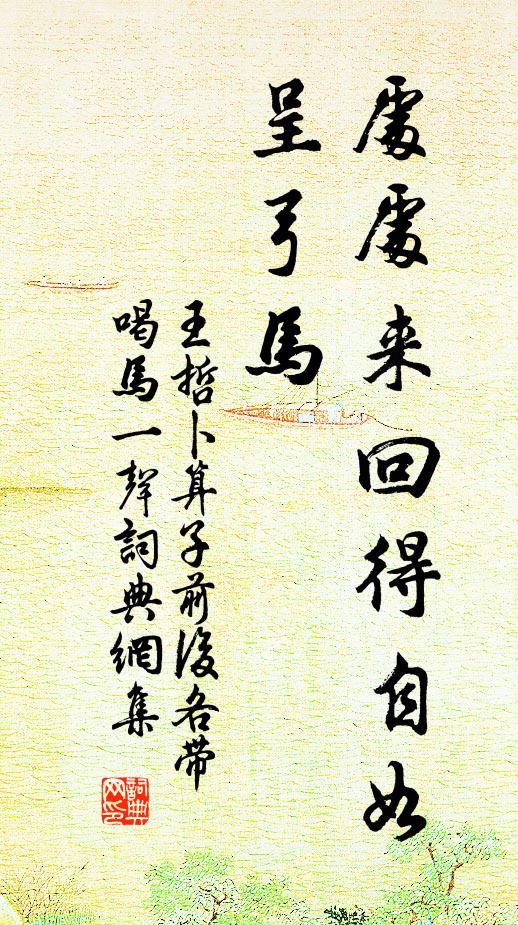 處處来回得自如
呈弓馬
王哲卜算子前後各帶
喝馬一聲詞典網集
詞典网印